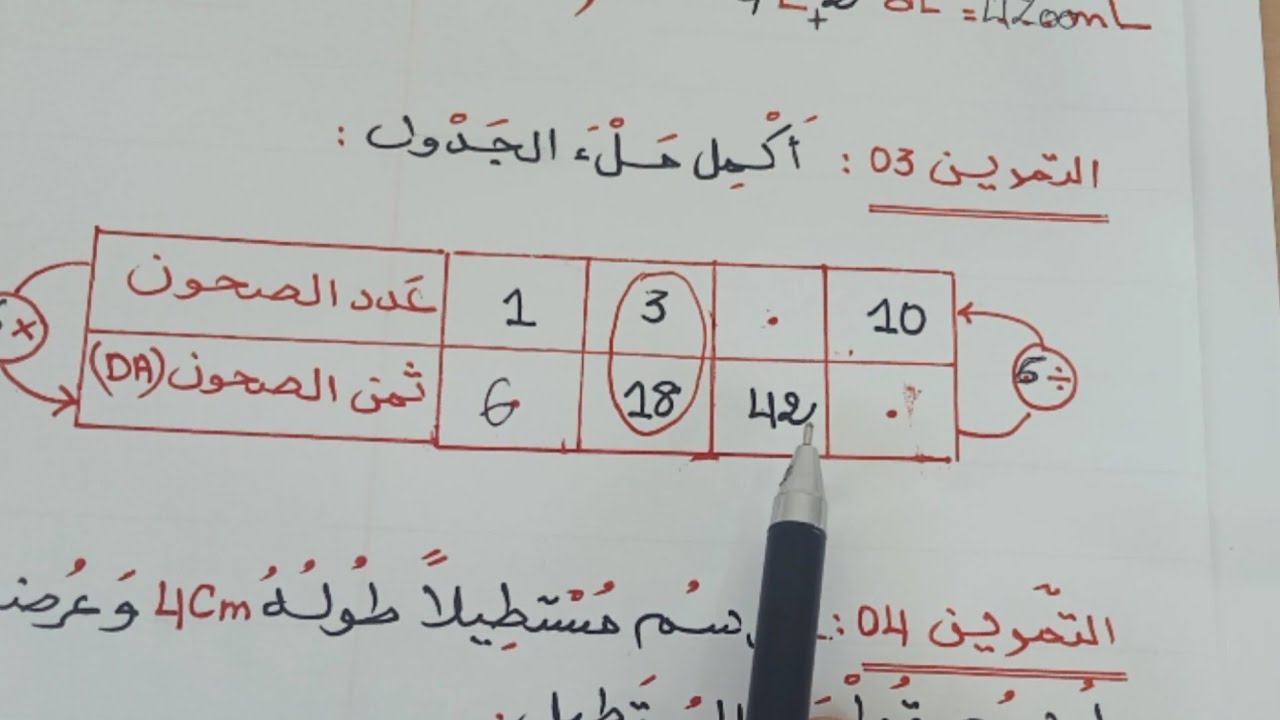 = 4200mL
التمرين 03 : أَكْمِل مَلْءَ الجَدْول :
عَدد الصحون 1 3 . 10
ثمن الصحون (DA) 6 18 42 .
×
6 ÷
التمّرين 04 : سُم مُسْتَطِيلاً طُولُهُ 4Cm وَعُرضُ